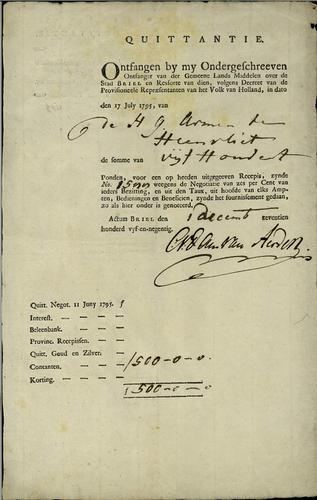 QUITTANTIE.
Ontfangen by my Ondergeschreeven
Ontfanger van der Gemeene Lands Middelen over de
Stad BRIEL en Ressorte van dien, volgens Decreet van de
Provisioneele Repræsentanten van het Volk van Holland, in dato
den 17 July 1795, van
De H G Armen de
Heenvliet
de somme van vijf Hondert
Ponden, voor een op heeden uitgegeeven Recepis, zynde
No. 1500 weegens de Negotiatie van zes per Cent van
ieders Bezitting, en uit den Taux, uit hoofde van elks Amp-
ten, Bedieningen en Beneficien, zynde het fournissement gedaan,
zo als hier onder is genoteerd.
Actum BRIEL den 1 Decemb zeventien
honderd vyf-en-negentig.
Quitt. Negot. 11 Juny 1795. f
Interest. — — — —
Beleenbank. — — —
Provinc. Recepissen. — —
Quitt. Goud en Zilver. —
Contanten. — — — 500-0-0
Korting. — — — —
500-0-0